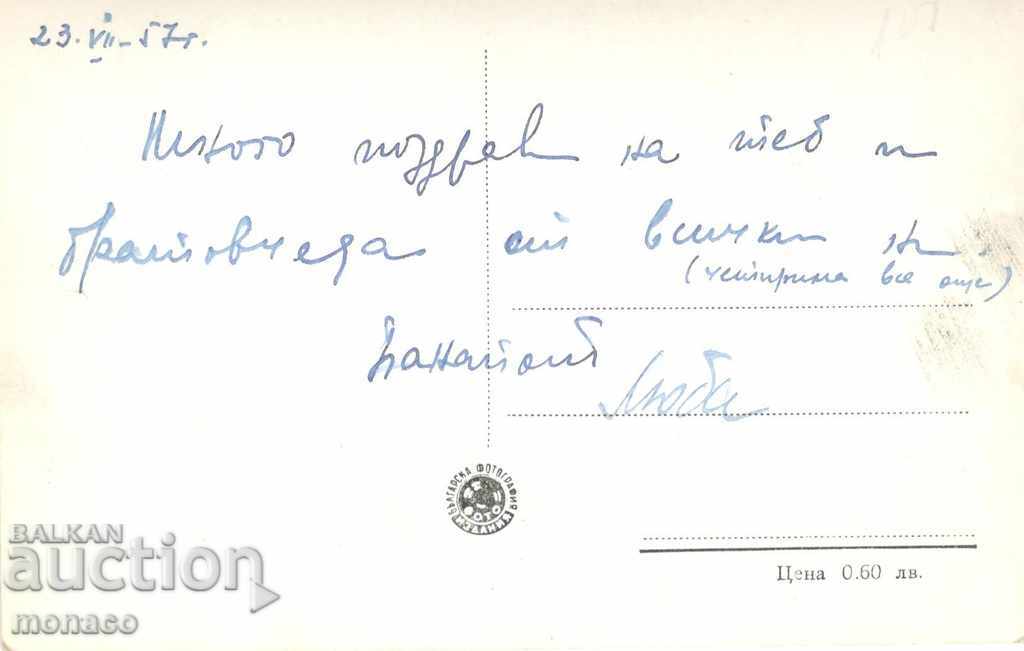 23. VII - 57 г.
Много поздрави на теб и
братовчеда от всички ни.
(четирима все още)
Панайот
Люба
БЪЛГАРСКА ФОТОГРАФИЯ
ФОТО
Цена 0.60 лв.
BALKAN
auction
monaco